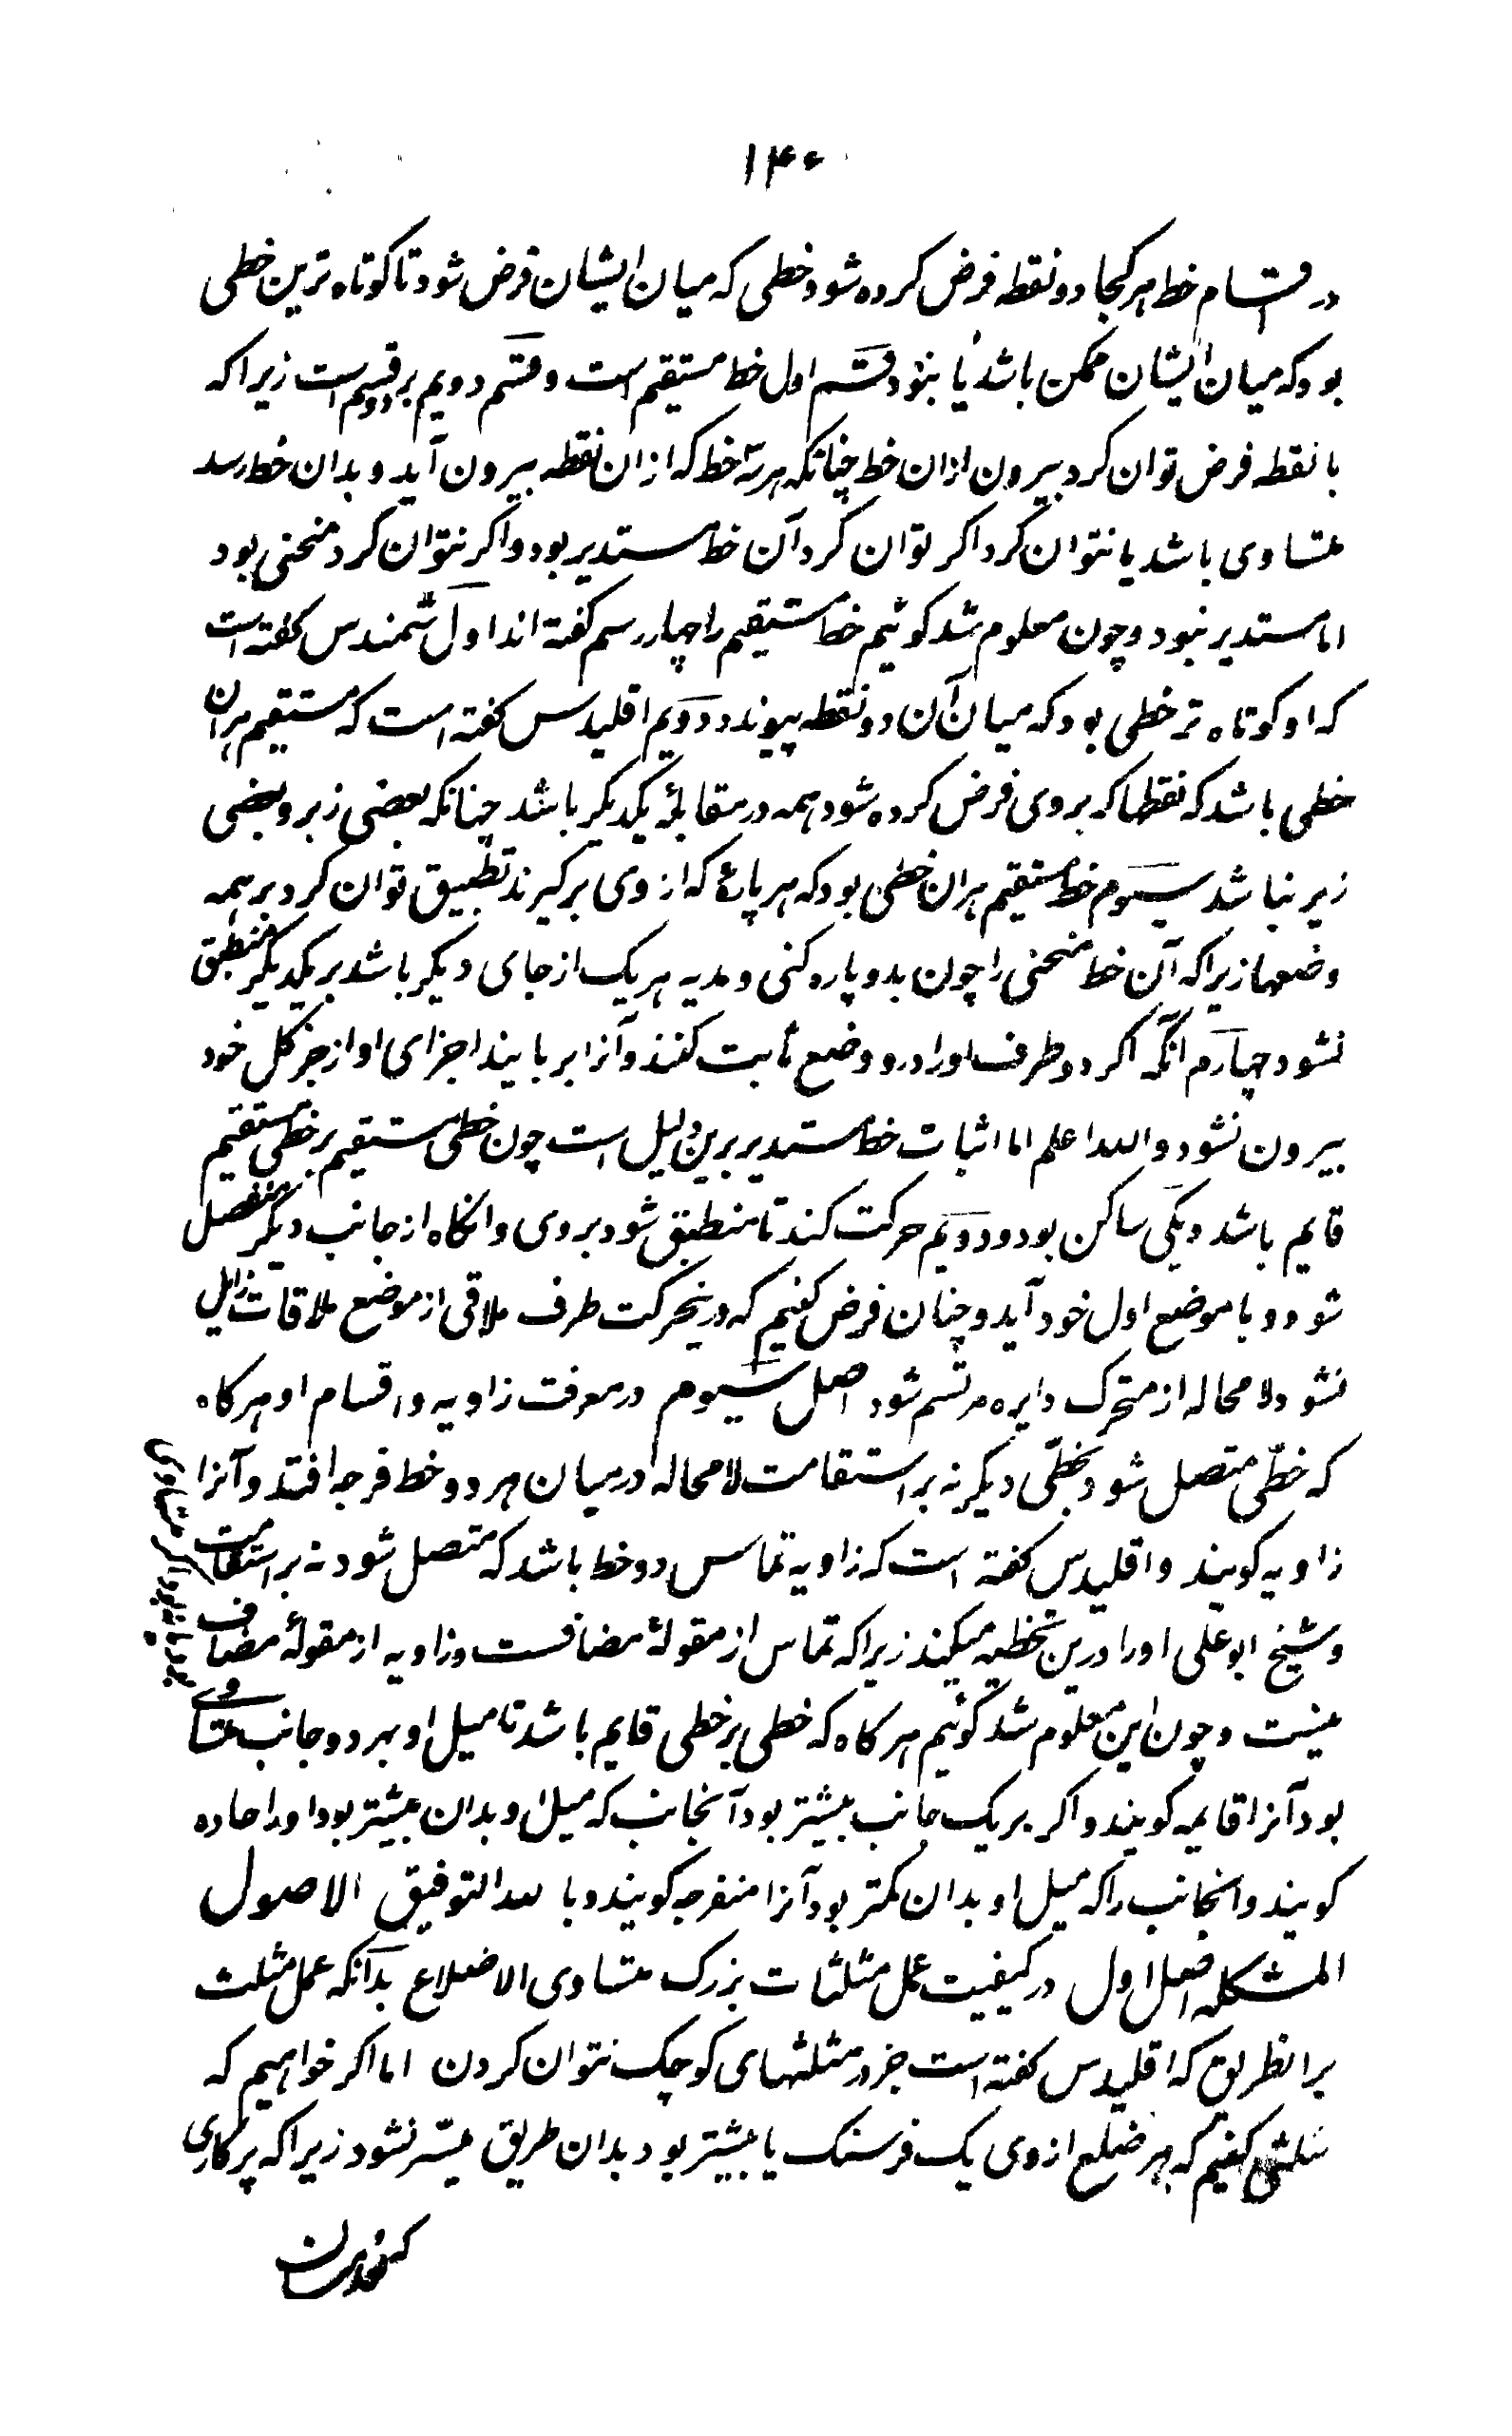 ۱۴۰
در قسام خط هر کجا دو نقطه فرض کرده شود خطی که میان ایشان فرض شود تا کوتاه ترین خطی
بود که میان ایشان ممکن باشد یا نبود قسم اول خط مستقیم است و قسم دویم بر دو قسم است زیرا که
یا نقطه فرض توان کرد بیرون ازان خط چنانکه هر سه خط که ازان نقطه بیرون آید و بدان خط رسد
متساوی باشد یا نتوان کرد اکر توان کرد آن خط مستدیر بود و اکر نتوان کرد منحنی بود
اما مستدیر نبود و چون معلوم شد کوئیم خط مستقیم را چهار رسم کفته اند اول ارشمندس کفته است
که او کوتاه تر خطی بود که میان آن دو نقطه پیوندد دویم اقلیدس کفته است که مستقیم هران
خطی باشد که نقطها که بروی فرض کرده شود همه در مقابلۀ یکدیکر باشد چنانکه بعضی زبر و بعضی
زیر نباشد سیوم خط مستقیم هران خطی بود که هر پارۀ که از وی برکیرند تطبیق توان کرد بر همه
وضعها زیرا که آن خط منحنی را چون بدو پاره کنی و هریک از جای دیکر باشد بر یکدیکر منطبق
نشود چهارم آنکه اکر دو طرف اورا درو وضع ثابت کنند و آنرا بربایند اجزای او از جز کل خود
بیرون نشود والله اعلم اما اثبات خط مستدیر برین دلیل است چون خطی مستقیم بر خطی مستقیم
قایم باشد و یکی ساکن بود و دویم حرکت کند تا منطبق شود بروی و انکاه از جانب دیکر منفصل
شود و با موضع اول خود آید و چنان فرض کنیم که درینحرکت طرف ملاقی از موضع ملاقات زایل
نشود لا محاله از متحرک دایره مرتسم شود اصل سیوم در معرفت زاویه و اقسام او هر کاه
که خطّی متصل شود بخطّی دیکر نه بر استقامت لا محاله درمیان هر دو خط فرجه افتد و آنرا
زاویه کویند و اقلیدس کفته است که زاویه تماس دو خط باشد که متصل شود نه بر استقامت
و شیخ ابوعلی اورا درین تخطیه میکند زیرا که تماس از مقولۀ مضافست و زاویه از مقولۀ مضاف
نیست و چون این معلوم شد کوئیم هر کاه که خطی بر خطی قایم باشد تا میل او بهر دو جانب متساوی
بود آنرا قایمه کویند و اکر بر یک جانب بیشتر بود آنجانب که میل او بدان بیشتر بود اورا حاده
کویند و انجانب را که میل او بدان کمتر بود آنرا منفرجه کویند و بالله التوفیق الاصول
المشکله اصل اول در کیفیت عمل مثلثات بزرک متساوی الاضلاع بدانکه عمل مثلث
برانطریق که اقلیدس کفته است جز در مثلثهای کوچک نتوان کردن اما اکر خواهیم که
مثلثی کنیم که هر ضلع از وی یک فرسنک یا بیشتر بود بدان طریق میسّر نشود زیرا که پرکاری